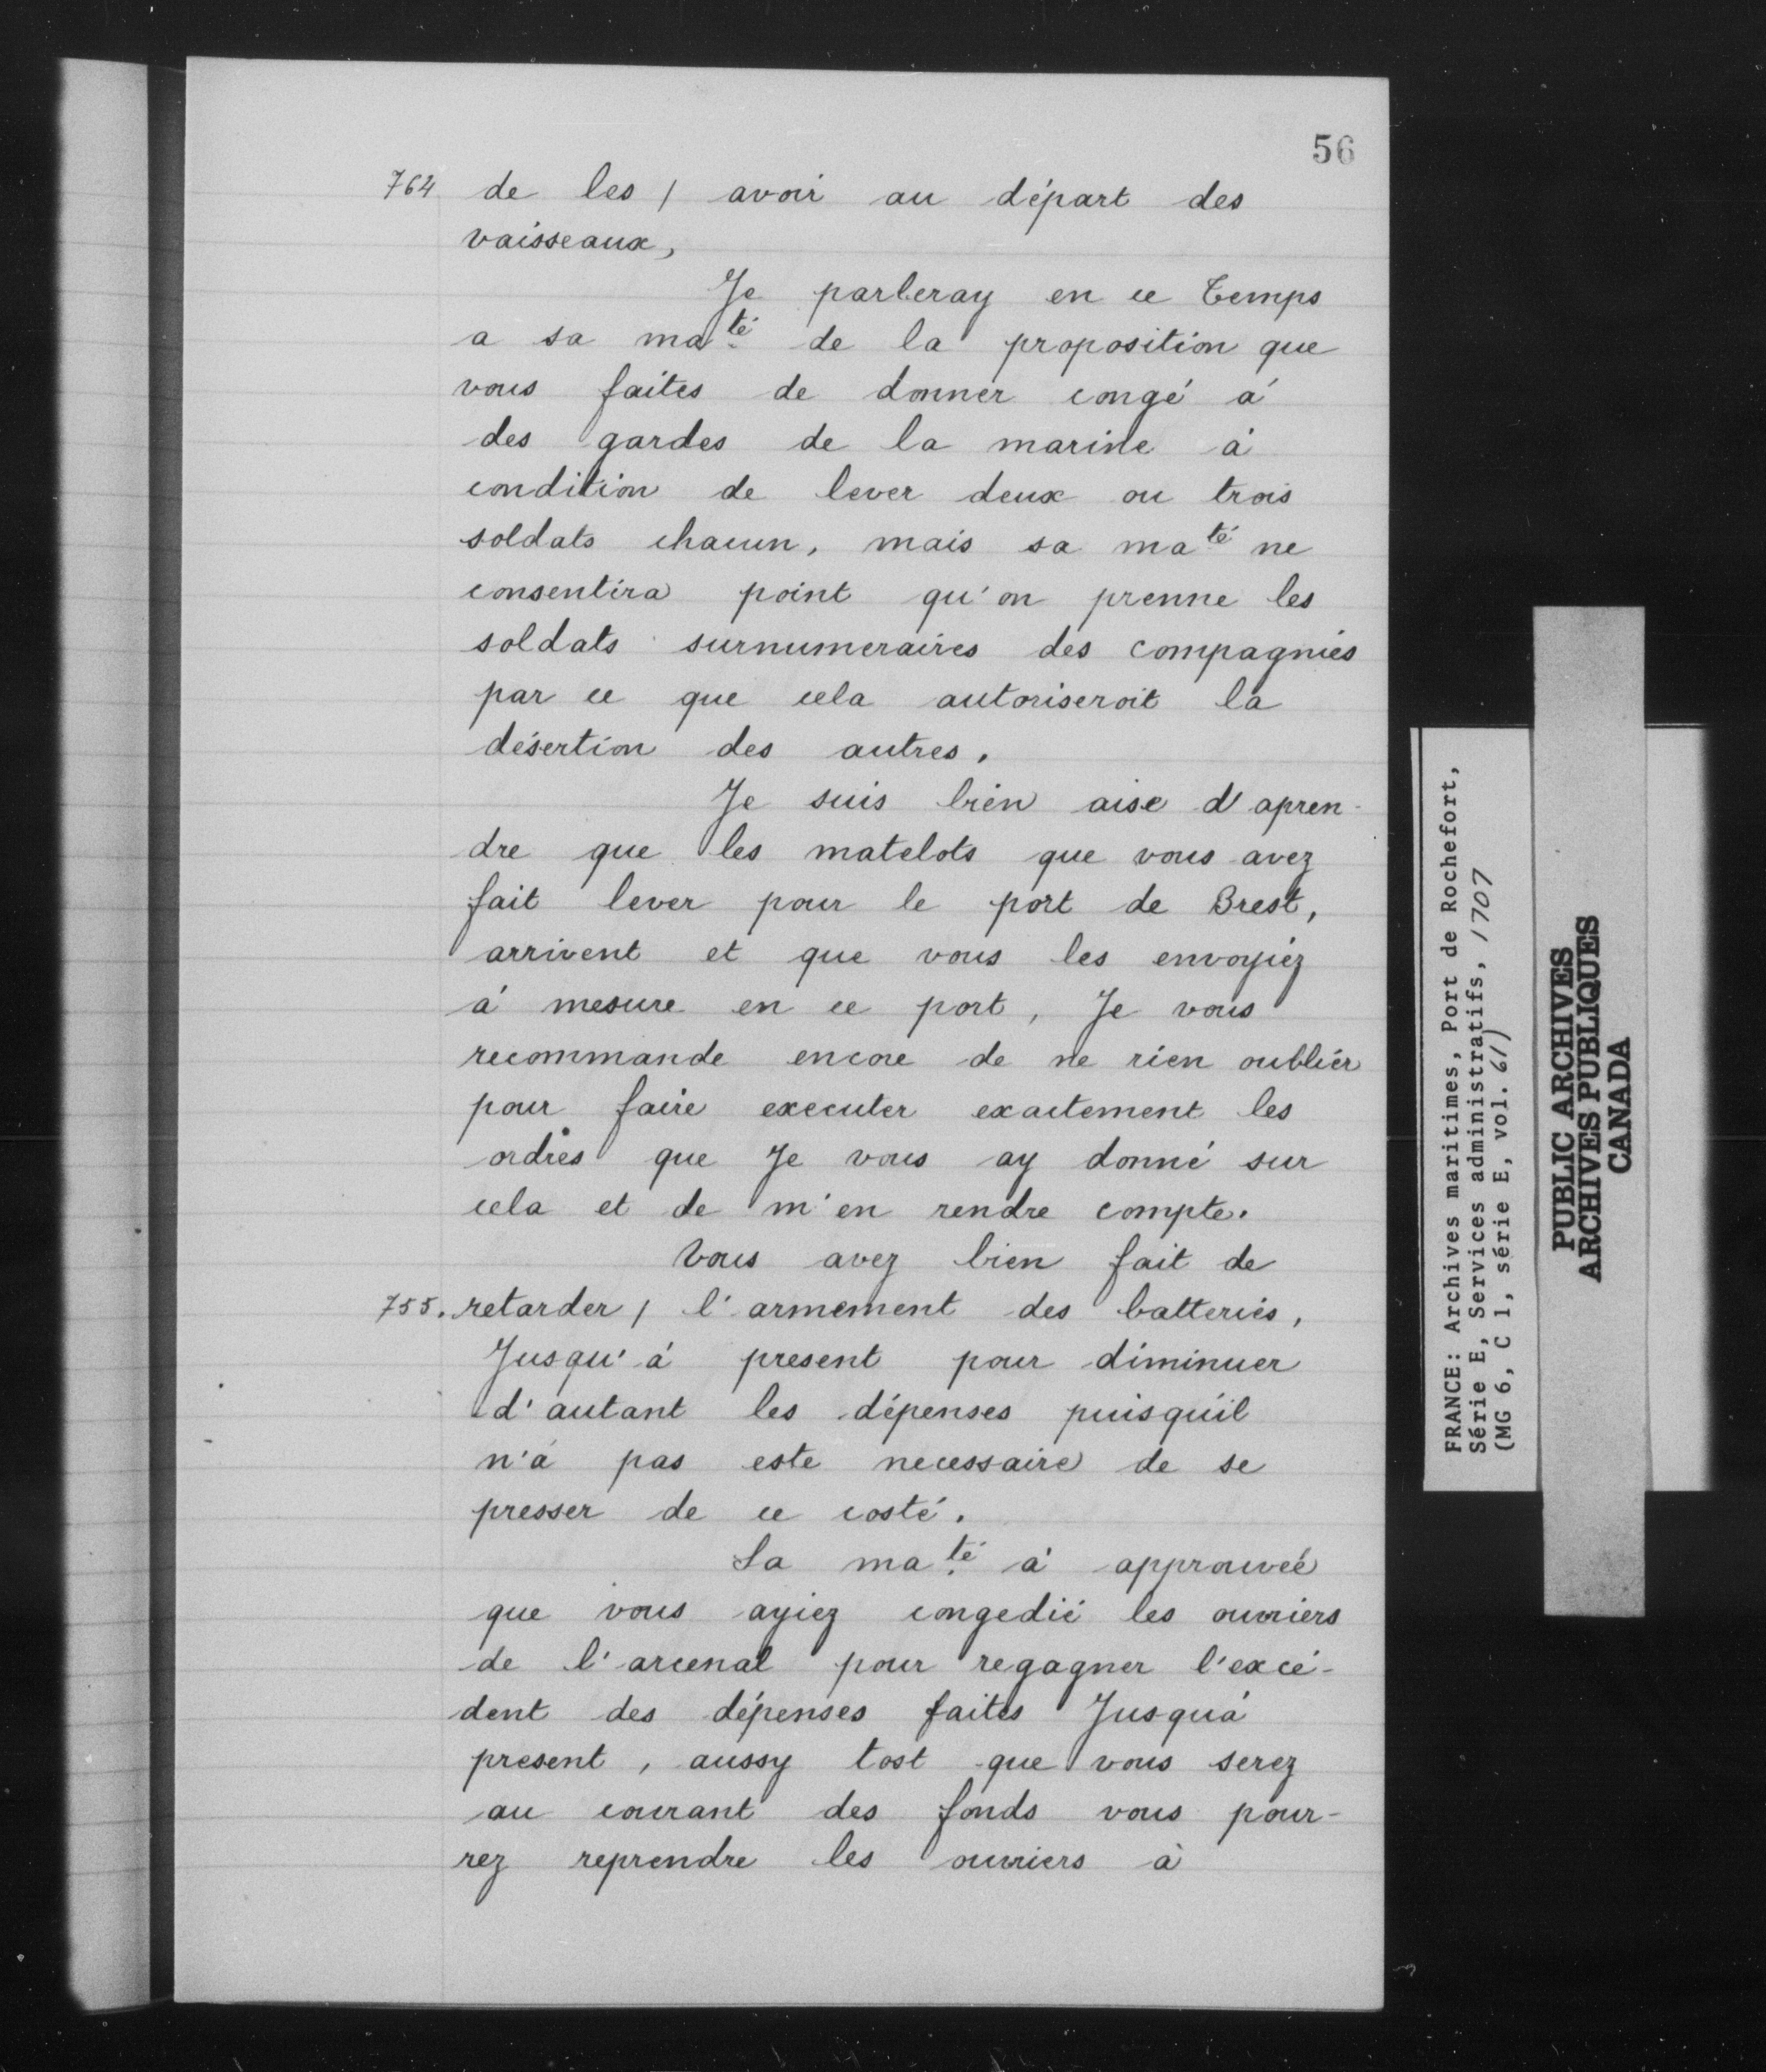 56
764 de les / avoir au départ des
vaisseaux,
Je parleray en ce Temps
a sa ma.té de la proposition que
vous faites de donner congé á
des gardes de la marine á
condition de lever deux ou trois
soldats chacun, mais sa maté ne
consentira point qu'on prenne les
soldats surnumeraires des compagnies
par ce que cela autoriseroit la
désertion des autres.
Je suis bien aise d'apren-
dre que les matelots que vous avez
fait lever pour le port de Brest,
arrivent et que vous les envoyiez
á mesure en ce port, Je vous
recommande encore de ne rien oublier
pour faire executer exactement les
ordres que Je vous ay donné sur
cela et de m'en rendre compte.
Vous avez bien fait de
755. retarder / l'armement des batteries,
Jusqu'á present pour diminuer
d'autant les dépenses puisqu'il
n'á pas este necessaire de se
presser de ce costé.
Sa ma.té á approuveé
que vous ayiez congedié les ouvriers
de l'arcenal pour regagner l'excé-
dent des dépenses faites Jusqu'á
present, aussy tost que vous serez
au courant des fonds vous pour-
rez reprendre les ouvriers à
FRANCE: Archives maritimes, Port de Rochefort,
Série E, Services administratifs, 1707
(MG 6, C 1, série E, vol. 61)
PUBLIC ARCHIVES
ARCHIVES PUBLIQUES
CANADA